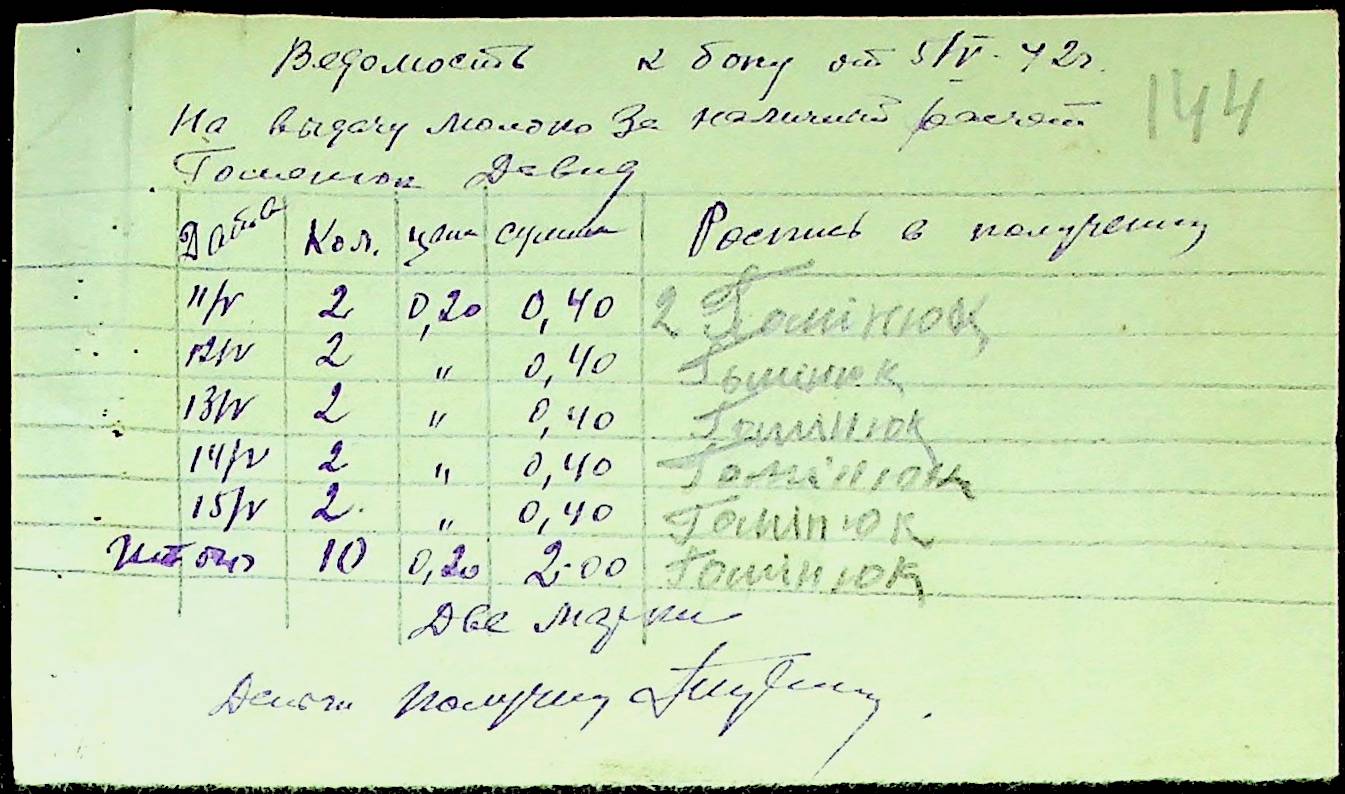 Ведомость к бону от 5/V-42г.
144
На выдачу молоко за наличный расчёт
Гоменюк Давид
Дата Кол. цена сумма Роспись в получении
11/V 2 0,20 0,40 2 Гомінюк
12/V 2 " 0,40 Гомінюк
13/V 2 " 0,40 Гомінюк
14/V 2 " 0,40 Гомінюк
15/V 2. " 0,40 Гомінюк
Итого 10 0,20 2-00 Гомінюк
Две марки
Деньги получил